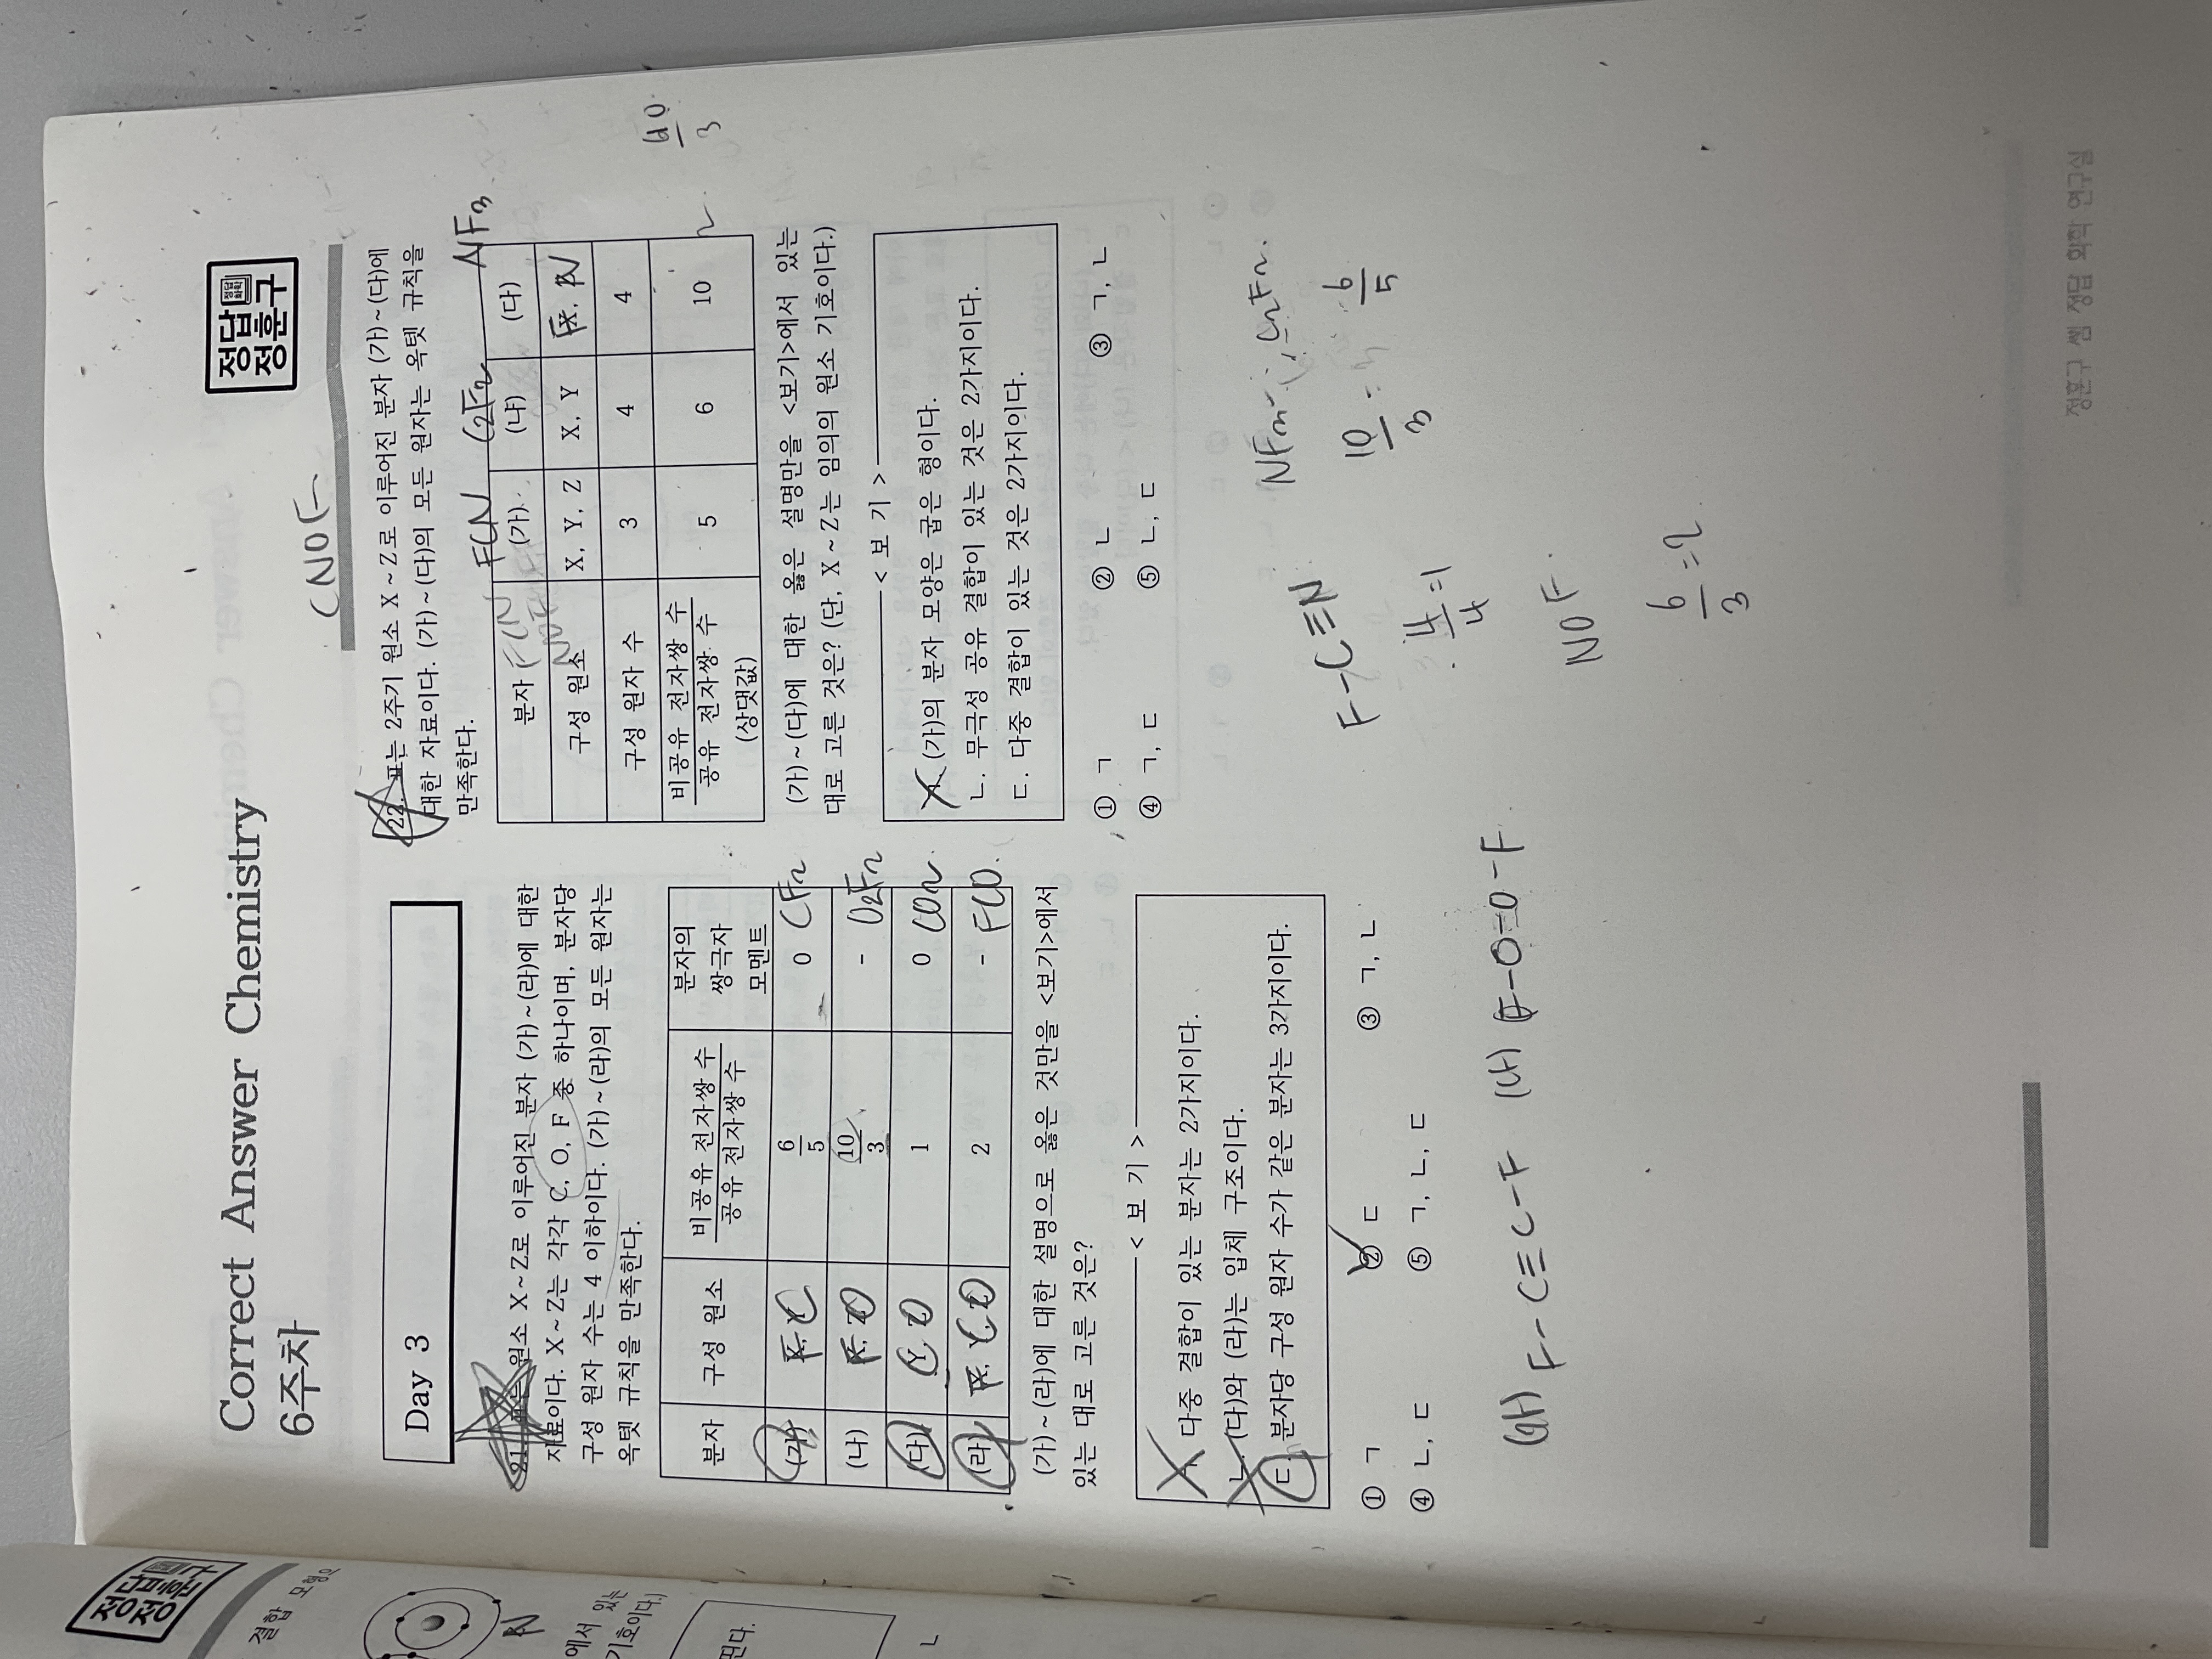 Correct Answer Chemistry
6주차
정답
정답화학
정훈구
CNOF
Day 3
원소 X ~ Z로 이루어진 분자 (가) ~ (라)에 대한
자료이다. X ~ Z는 각각 C, O, F 중 하나이며, 분자당
구성 원자 수는 4 이하이다. (가) ~ (라)의 모든 원자는
옥텟 규칙을 만족한다.
분자 구성 원소 비공유 전자쌍 수 / 공유 전자쌍 수 분자의 쌍극자 모멘트
(가) F, C 6/5 0 CF2
(나) F, O 10/3 - O2F2
(다) C, O 1 0 CO2
(라) F, C, O 2 - FCO
(가) ~ (라)에 대한 설명으로 옳은 것만을 <보기>에서
있는 대로 고른 것은?
< 보 기 >
다중 결합이 있는 분자는 2가지이다.
ㄴ. (다)와 (라)는 입체 구조이다.
ㄷ. 분자당 구성 원자 수가 같은 분자는 3가지이다.
① ㄱ ② ㄷ ③ ㄱ, ㄴ
④ ㄴ, ㄷ ⑤ ㄱ, ㄴ, ㄷ
F-C≡C-F (나) F-O-O-F
22. 표는 2주기 원소 X ~ Z로 이루어진 분자 (가) ~ (다)에
대한 자료이다. (가) ~ (다)의 모든 원자는 옥텟 규칙을
만족한다.
FCN C2F2 NF3
분자 (가) (나) (다)
FCN
NOF
구성 원소 X, Y, Z X, Y F, N
구성 원자 수 3 4 4
비공유 전자쌍 수 / 공유 전자쌍 수 (상댓값) 5 6 10
(가) ~ (다)에 대한 옳은 설명만을 <보기>에서 있는
대로 고른 것은? (단, X ~ Z는 임의의 원소 기호이다.)
< 보 기 >
(가)의 분자 모양은 굽은 형이다.
ㄴ. 무극성 공유 결합이 있는 것은 2가지이다.
ㄷ. 다중 결합이 있는 것은 2가지이다.
① ㄱ ② ㄴ ③ ㄱ, ㄴ
④ ㄱ, ㄷ ⑤ ㄴ, ㄷ
C2F2.
10/3
6/5
F-C≡N
4/4=1
NOF
6/3=2
정훈구 쌤 정답 화학 연구실
정답
정훈구
결합 모형으
N
에서 있는
기호이다.)
ㄴ